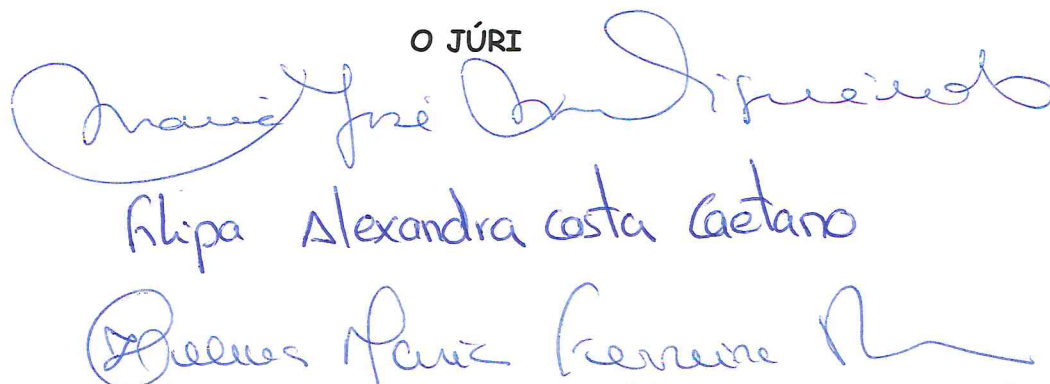 O JÚRI
Maria José Figueiredo
Filipa Alexandra Costa Caetano
Maria Ferreira